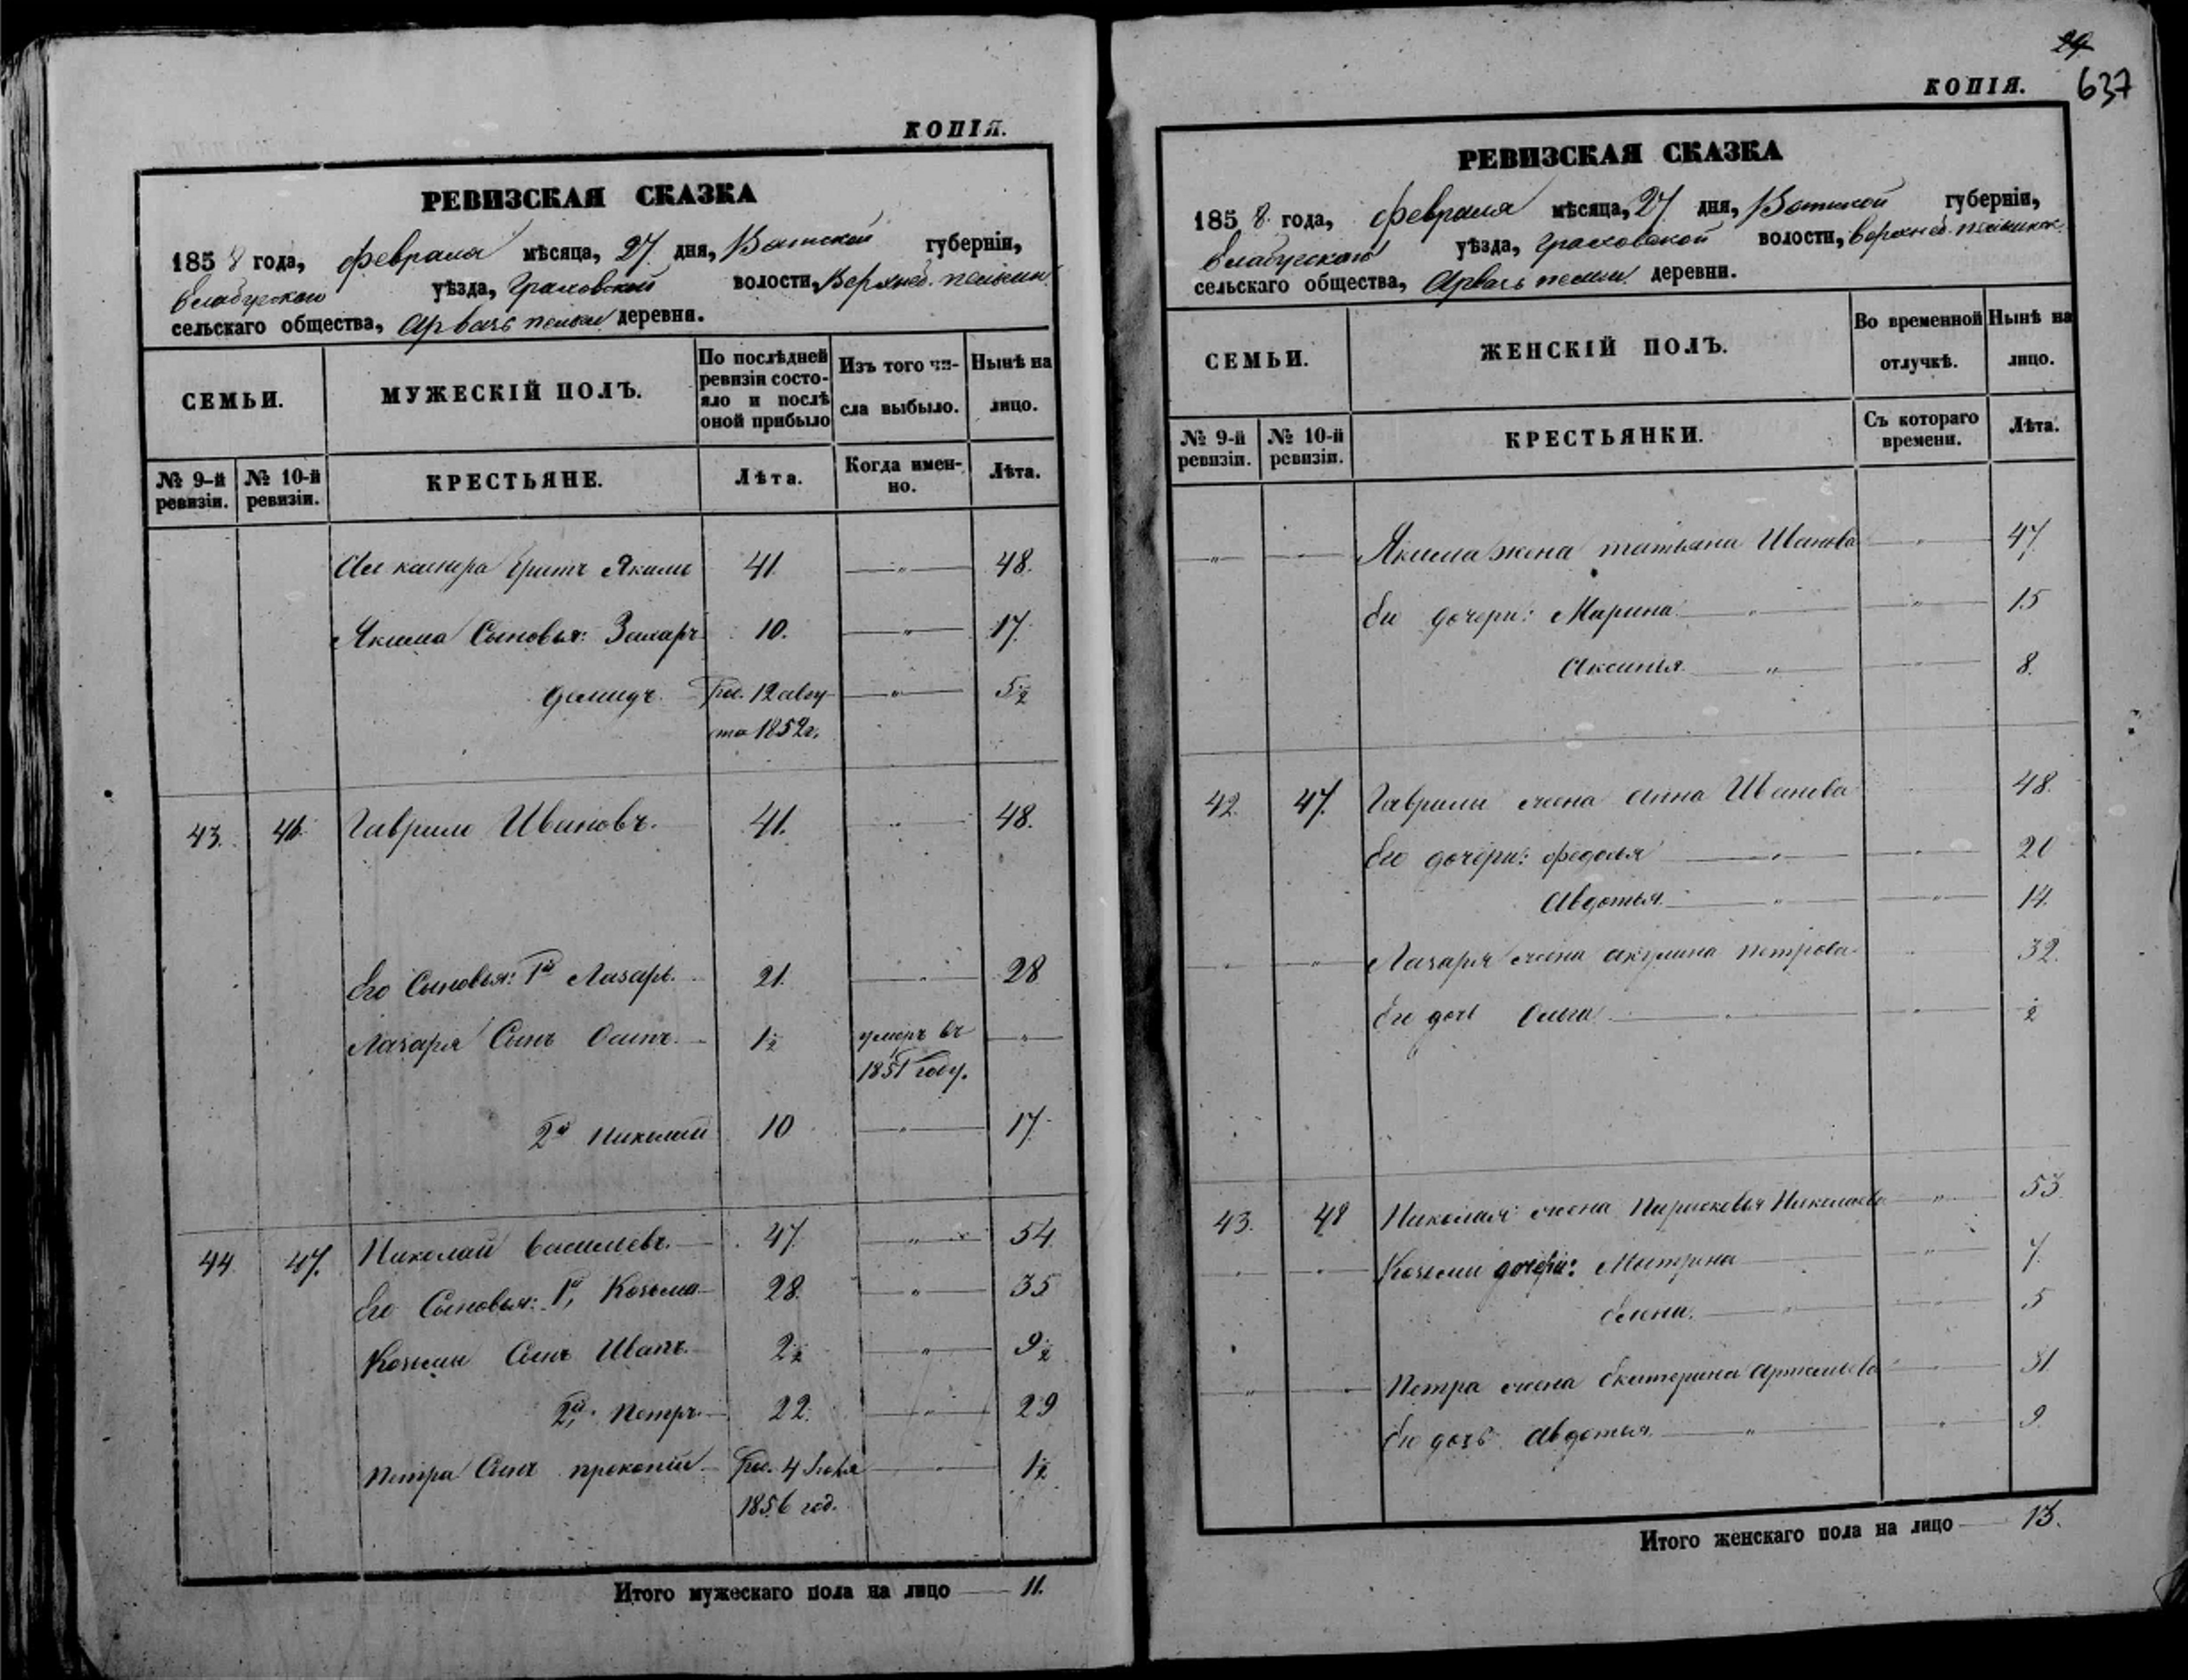 КОПІЯ.
РЕВИЗСКАЯ СКАЗКА
1858 года, февраля мѣсяца, 27 дня, Вятской губерніи,
Елабугскаго уѣзда, Граховской волости,
сельскаго общества, Арвазь пельги деревни.
СЕМЬИ. МУЖЕСКІЙ ПОЛЪ. По послѣдней ревизіи состояло и послѣ оной прибыло Изъ того числа выбыло. Нынѣ на лицо.
№ 9-й ревизіи. № 10-й ревизіи. КРЕСТЬЯНЕ. Лѣта. Когда именно. Лѣта.
братъ Якимъ 41 — " — 48.
Якима Сыновья: Захаръ 10. — " — 17.
Демидъ. 12 авгу- — " — 5½
ста 1852 г.
43. 46. Гаврило Ивановъ. 41. — " — 48.
Его Сыновья: 1й Лазарь. 21. — " — 28
Лазаря Сынъ Осипъ. 1½ умеръ въ — " —
1851 году.
2й Николай 10 — " — 17.
44 47. Николай Васильевъ. 47. — " — 54
Его Сыновья: 1й, Козьма 28. — " — 35
Козьмы Сынъ Иванъ. 2½ — " — 9½
2й, Петръ. 22. — " — 29
Петра Сынъ Прокопій 4 Іюля — " — 1½
1856 год.
Итого мужескаго пола на лицо — 11.
29
КОПІЯ. 637
РЕВИЗСКАЯ СКАЗКА
1858 года, февраля мѣсяца, 27 дня, Вятской губерніи,
Елабугскаго уѣзда, Граховской волости,
сельскаго общества, Арвазь пельги деревни.
СЕМЬИ. ЖЕНСКІЙ ПОЛЪ. Во временной отлучкѣ. Нынѣ на лицо.
№ 9-й ревизіи. № 10-й ревизіи. КРЕСТЬЯНКИ. Съ котораго времени. Лѣта.
— " — — " — Якима жена Татьяна Иванова — " — 47.
Ея дочери: Марина — " — — " — 15
Аксинія — " — — " — 8.
42. 47. Гаврилы жена Анна Иванова 48.
Его дочери: Федосья — " — — " — 20
Авдотья — " — — " — 14.
— " — — " — Лазаря жена Акулина Петрова 32.
Его дочь Ольга — " — — " — ½
43. 48 Николая жена Парасковья Николаева — " — 53
— " — — " — Козьмы дочери: Матрена — " — 7.
Елена. — " — — " — 5
— " — — " — Петра жена Екатерина — " — 31
Ея дочь Авдотья — " — — " — 9
Итого женскаго пола на лицо — 13.